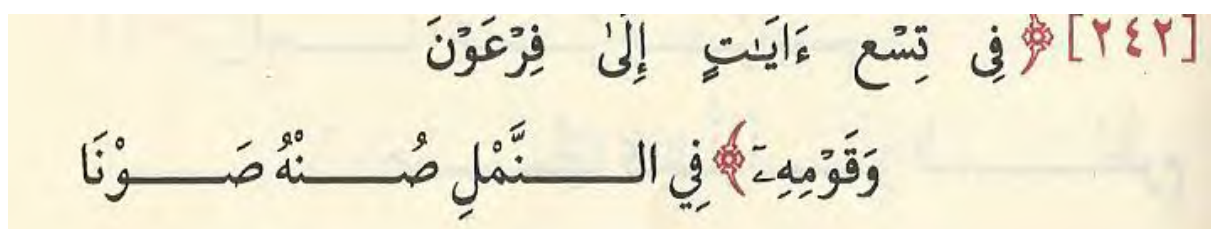 [٢٤٢] ﴿فِى تِسْع ءَايَٰتٍ إِلَىٰ فِرْعَوْنَ
وَقَوْمِهِۦٓ﴾ فِي الــنَّمْلِ صُــنْهُ صَــوْنَا